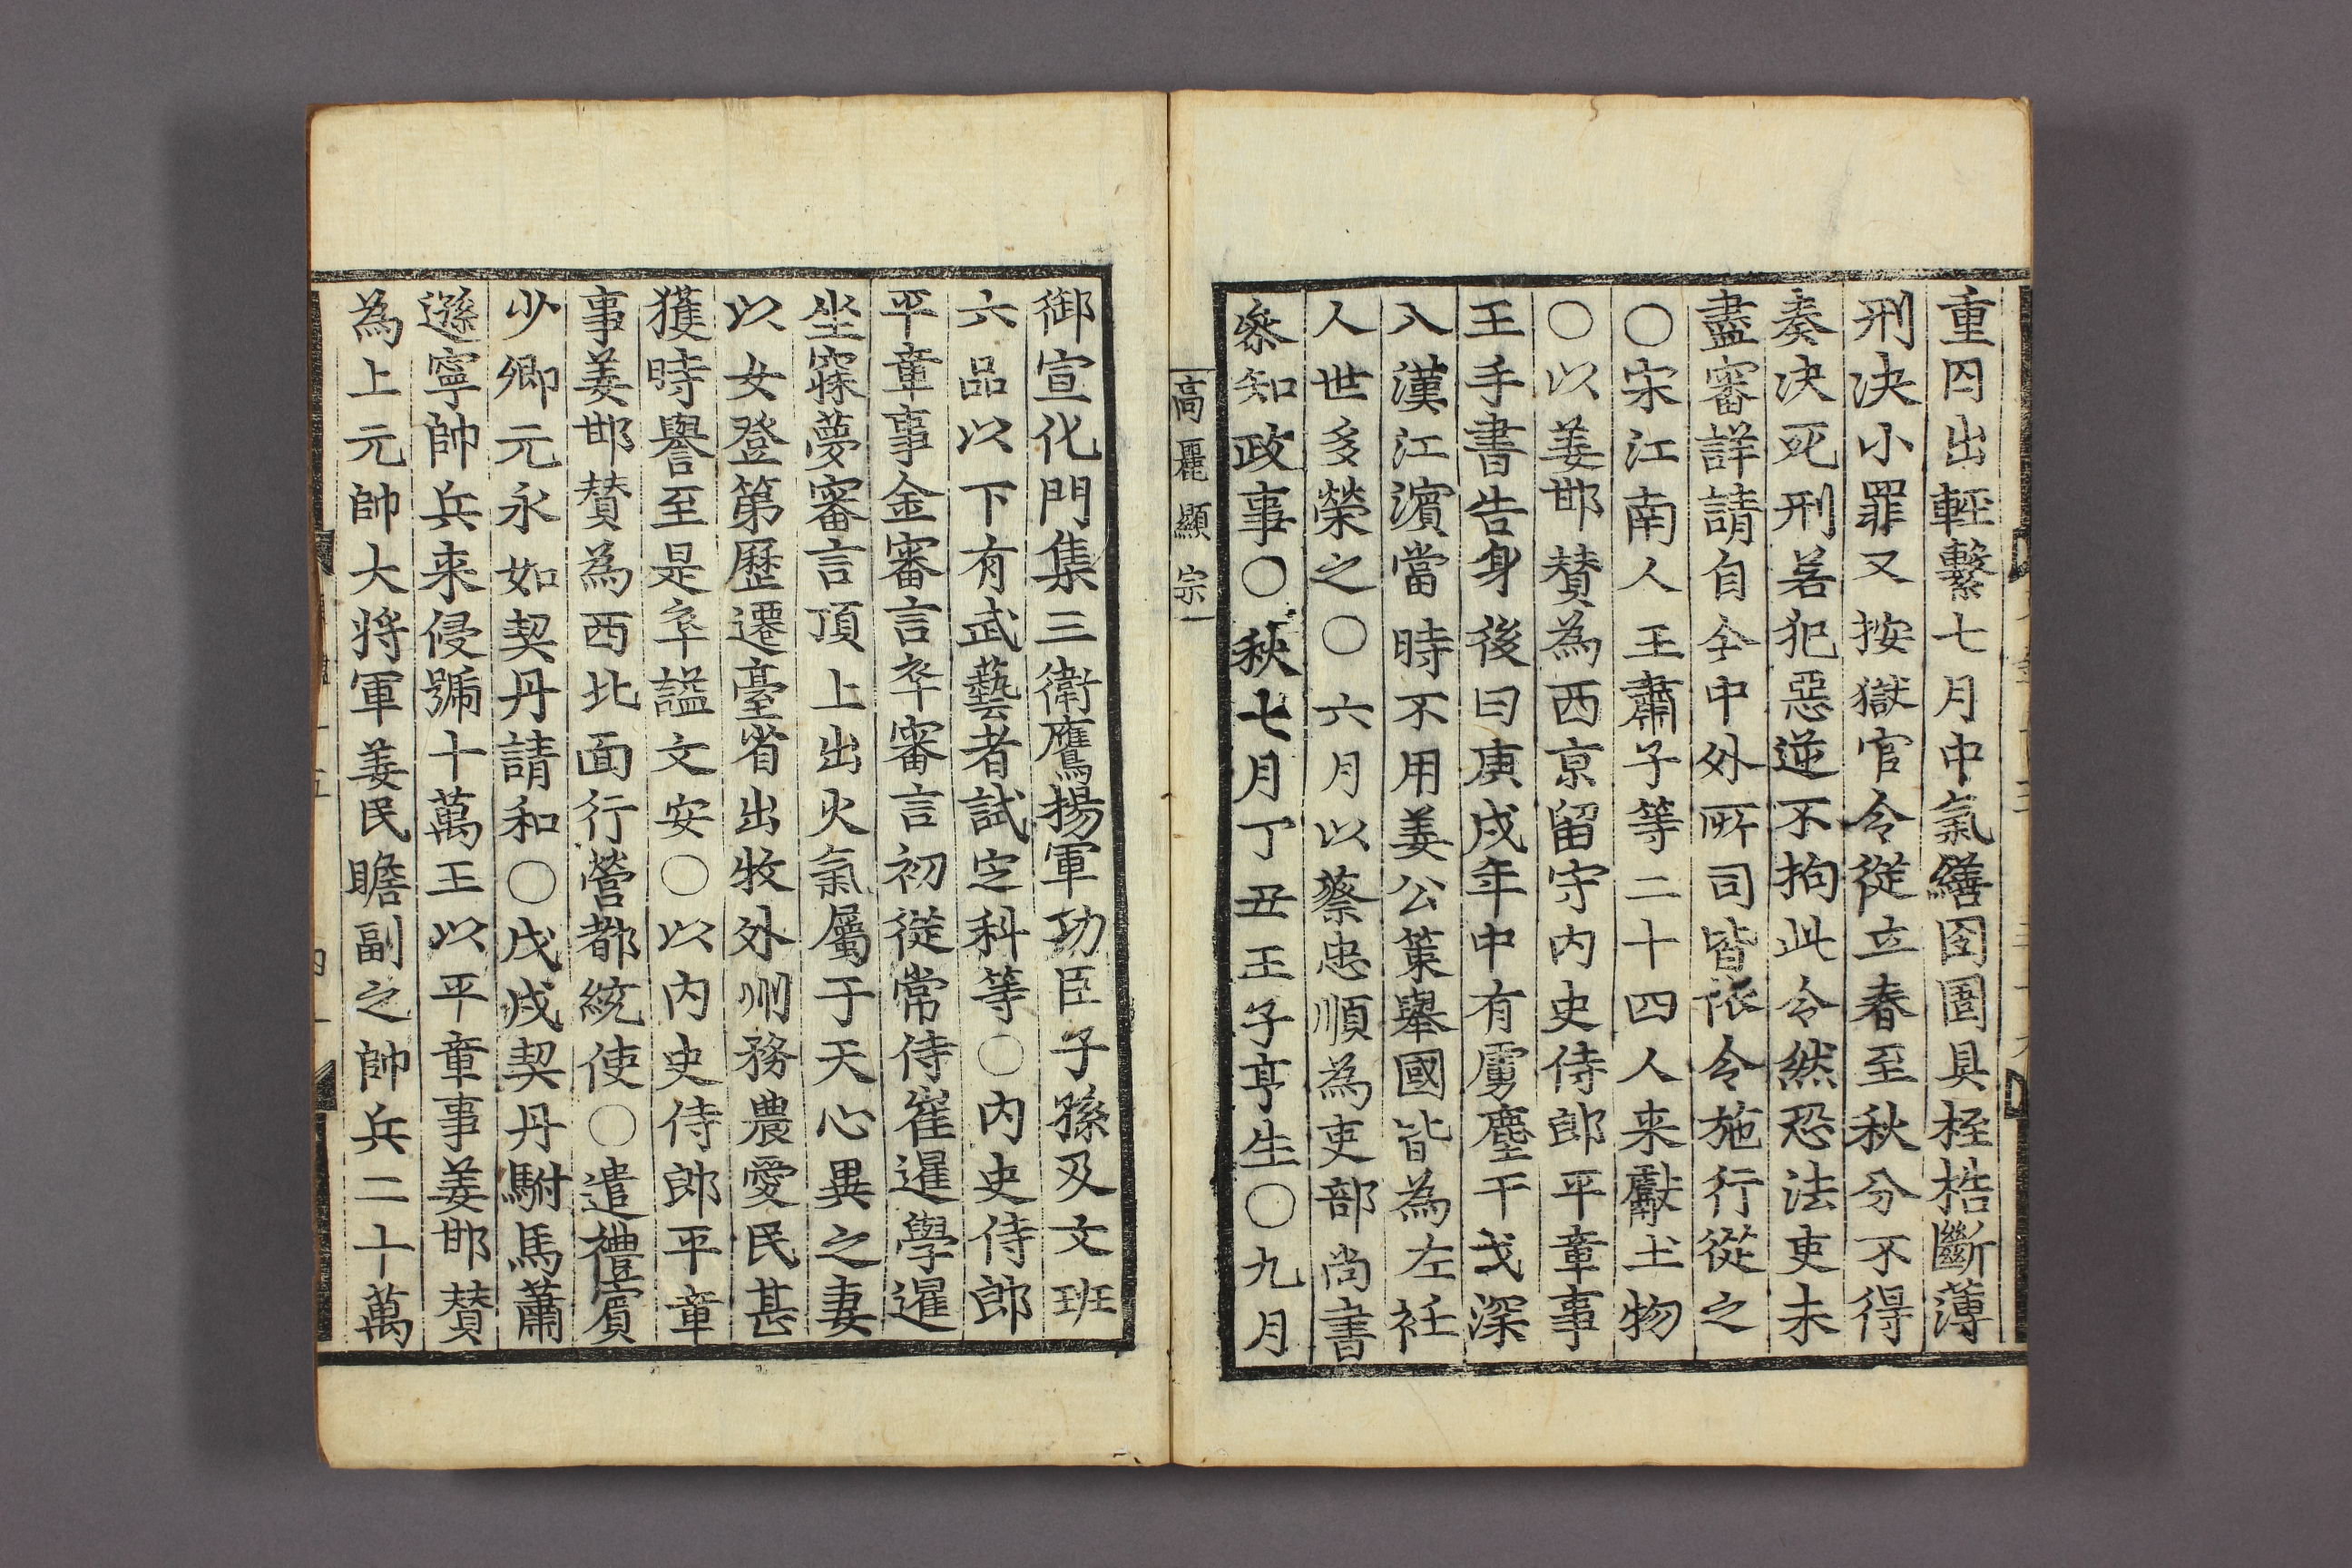 重囚出輕繫七月中氣繕囹圄具桎梏斷薄
刑决小罪又按獄官令從立春至秋分不得
奏决死刑若犯惡逆不拘此令然恐法吏未
盡審詳請自今中外所司皆依令施行從之
〇宋江南人王肅子等二十四人来獻土物
〇以姜邯賛為西京留守内史侍郎平章事
王手書告身後曰庚戌年中有虜塵干戈深
入漢江濵當時不用姜公策舉國皆為左衽
人世多榮之〇六月以蔡忠順為吏部尚書
叅知政事〇秋七月丁丑王子亨生〇九月
高麗顯宗
御宣化門集三衛鷹揚軍功臣子孫及文班
六品以下有武藝者試定科等〇内史侍郎
平章事金審言卒審言初從常侍崔暹學暹
坐寐夢審言頂上出火氣屬于天心異之妻
以女登第歷遷臺省出牧外州務農愛民甚
獲時譽至是卒謚文安〇以内史侍郎平章
事姜邯賛為西北面行營都統使〇遣禮賓
少卿元永如契丹請和〇戊戌契丹駙馬蕭
遜寧帥兵来侵號十萬王以平章事姜邯賛
為上元帥大將軍姜民瞻副之帥兵二十萬